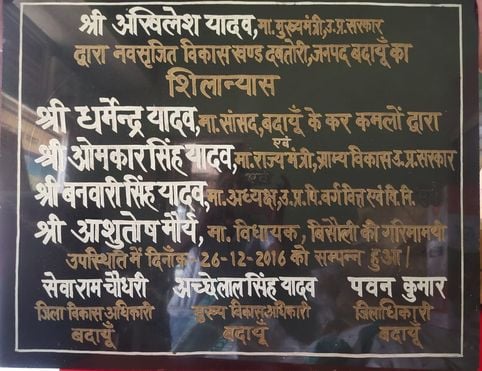 श्री अखिलेश यादव, मा. मुख्यमंत्री, उ.प्र. सरकार
द्वारा नवसृजित विकास खण्ड दबतोरी, जनपद बदायूँ का
शिलान्यास
श्री धर्मेन्द्र यादव, मा. सांसद, बदायूँ के कर कमलों द्वारा
एवं
श्री ओमकार सिंह यादव, मा. राज्य मंत्री, ग्राम्य विकास उ.प्र. सरकार
एवं
श्री बनवारी सिंह यादव, मा. अध्यक्ष, उ.प्र. पि. वर्ग वित्त एवं वि. नि.
श्री आशुतोष मौर्य, मा. विधायक, बिसौली की गरिमामयी
उपस्थिति में दिनांक- 26-12-2016 को सम्पन्न हुआ।
सेवा राम चौधरी अच्छेलाल सिंह यादव पवन कुमार
जिला विकास अधिकारी मुख्य विकास अधिकारी जिलाधिकारी
बदायूँ बदायूँ बदायूँ